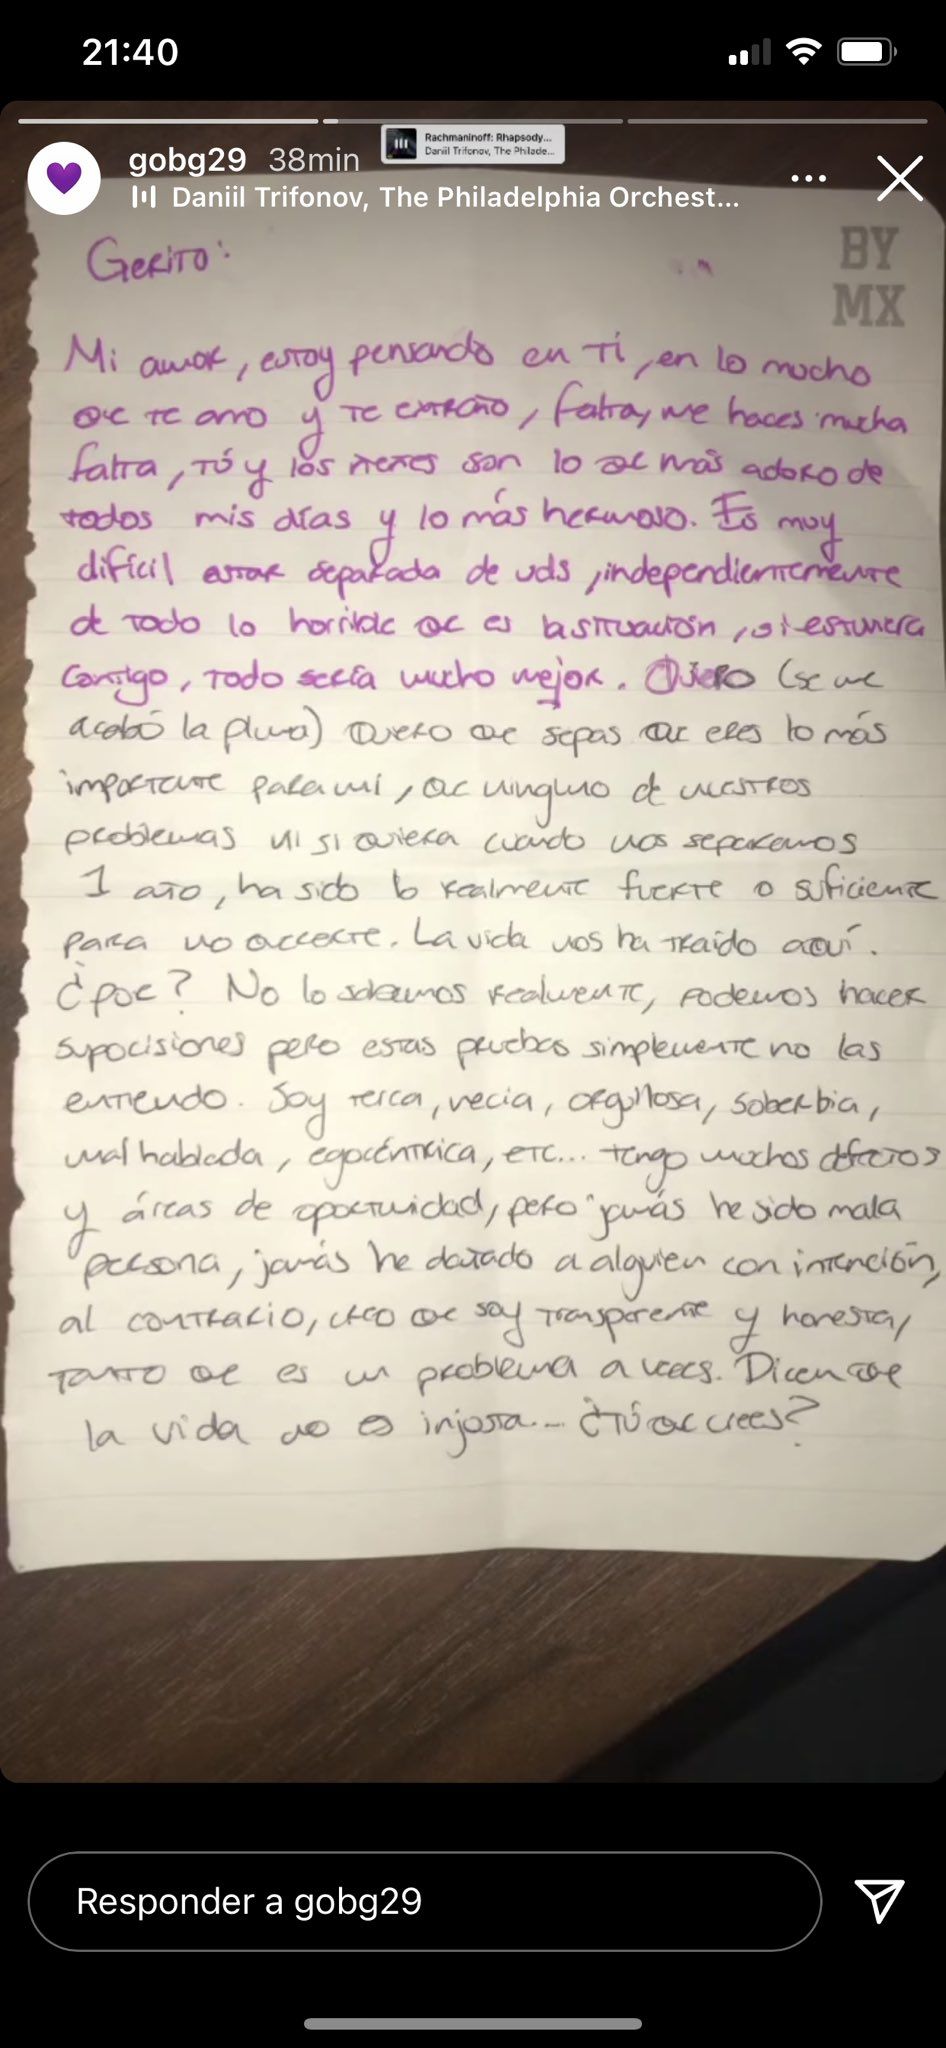 21:40
Rachmaninoff: Rhapsody...
Daniil Trifonov, The Philade...
gobg29 38min
Daniil Trifonov, The Philadelphia Orchest...
BY
MX
Gerito:
Mi amor, estoy pensando en ti, en lo mucho
qe te amo y te extraño, falta, me haces mucha
falta, tú y los nenes son lo qe más adoro de
todos mis días y lo más hermoso. Es muy
difícil estar separada de uds, independientemente
de todo lo horrible qe es la situación, si estuviera
contigo, todo sería mucho mejor. Quiero (se me
acabó la pluma) Quiero qe sepas qe eres lo más
importante para mí, qe ninguno de nuestros
problemas ni si quiera cuando nos separamos
1 año, ha sido lo realmente fuerte o suficiente
para no qererte. La vida nos ha traído aquí.
¿por qe? No lo sabemos realmente, podemos hacer
suposiciones pero estas pruebas simplemente no las
entiendo. Soy terca, necia, orgullosa, soberbia,
mal hablada, egocéntrica, etc... tengo muchos defectos
y áreas de oportunidad, pero jamás he sido mala
persona, jamás he dañado a alguien con intención,
al contrario, creo qe soy transparente y honesta,
tanto qe es un problema a veces. Dicen qe
la vida no es injusta... ¿Tú qe crees?
Responder a gobg29